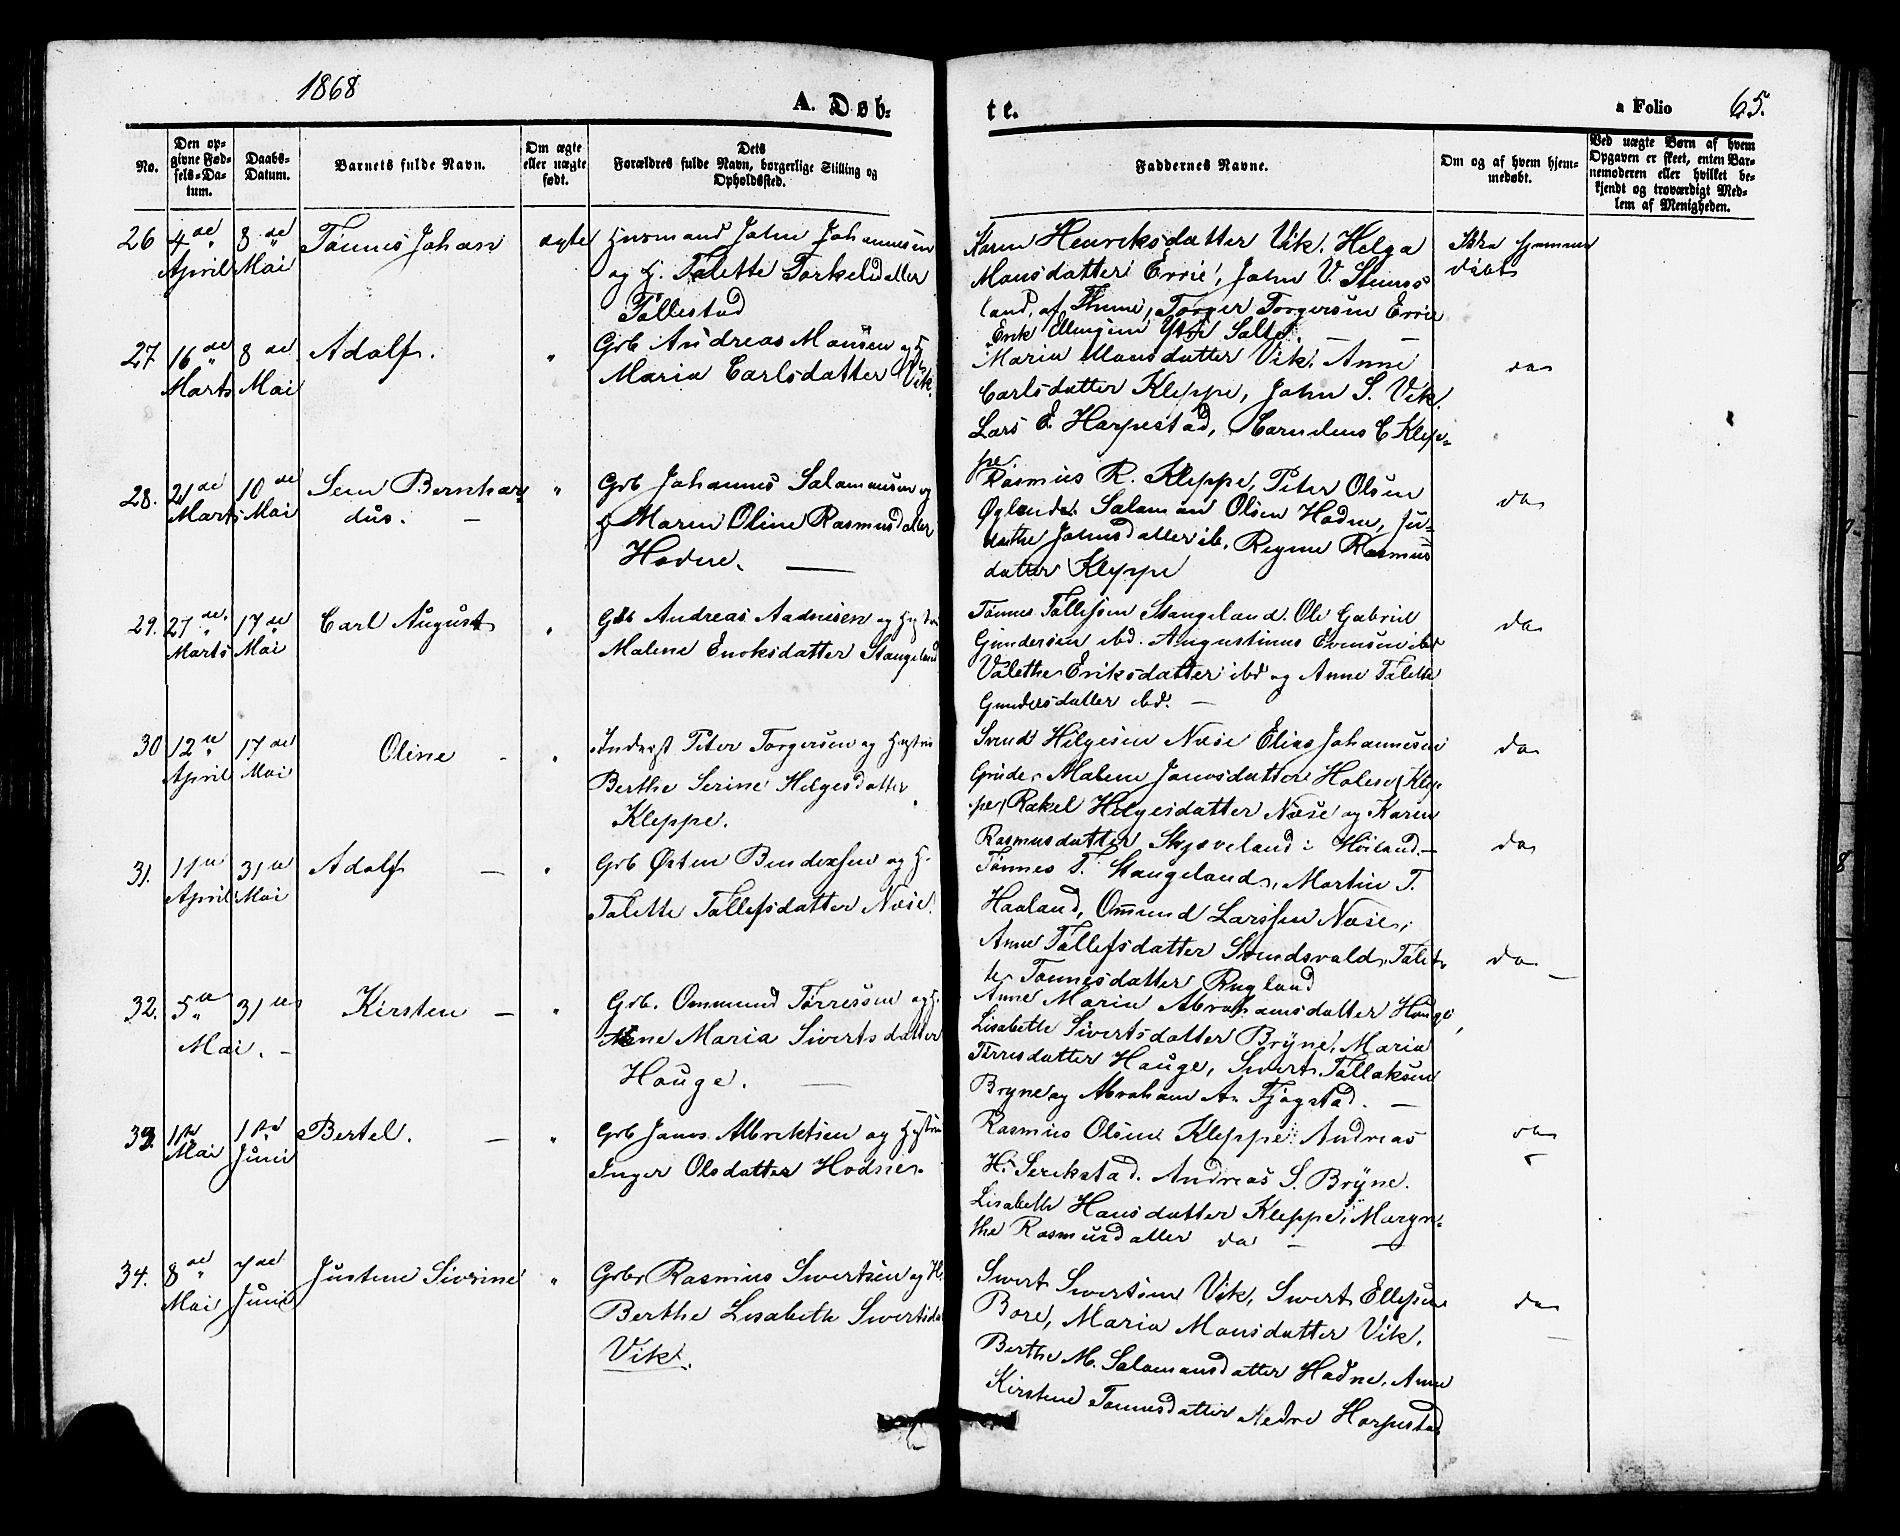 1868
A. Døb-
te.
a Folio 65.
No.
Den op-
givne Fød-
sels-Da-
tum.
Daabs-
Datum.
Barnets fulde Navn.
Om ægte
eller uægte
født.
Dets
Forældres fulde Navn, borgerlige Stilling og
Opholdssted.
Faddernes Navne.
Om og af hvem hjem-
medøbt.
Ved uægte Børn af hvem
Opgaven er skeet, enten Bar-
nemoderen eller hvilket be-
kjendt og troværdigt Med-
lem af Menigheden.
26 4de April
8de Mai
Tønnes Johan
ægte
Huusmand John Johannesen
og H. Talette Torkelsdatter
Tollestad
Karen Henriksdatter Vik. Helga
Monsdatter Errie, John V. Stums
land, af Thime, Torger Torgersen Errie
Erik Ellingsen Ytre Salte.
Ikke hjemme
døbt
27 16de Marts
8de Mai
Adolf.
"
Grb Andreas Monsen og H
Maria Carlsdatter Vik.
Maria Monsdatter Vik. Anne
Carlsdatter Kleppe, John S. Vik.
Lars E. Harpestad, Cornelius C Klep-
pe
da
28. 21de Marts
10de Mai
Sem Bernhar
dus. -
"
Grb Johannes Salamonsen og
H Maren Oline Rasmusdatter
Hodne.
Rasmus R. Kleppe, Peter Olsen
Øglænde. Salamon Olsen Hodne, Ju-
dithe Johnsdatter ib. Regine Rasmus
datter Kleppe
da
29. 27de Marts
17de Mai
Carl August
"
Grb Andreas Aadnesen og Hustru
Malene Enoksdatter Stangeland
Tønnes Tollefsen Stangeland. Ole Gabriel
Gundersen ibd. Augustinus Evensen ibd
Valethe Eriksdatter ibd og Anne Talette
Gundersdatter ibd. -
da
30 12te April
17de Mai
Oline -
"
Inderst Peter Torgersen og Hustru
Berthe Serine Helgesdatter
Kleppe.
Svend Helgesen Næse Elias Johannesen
Grude, Malene Janosdatter Holen (Klep
pe) Rakel Helgesdatter Næse og Karen
Rasmusdatter Skjæveland i Høiland. -
da
31. 11te April
31te Mai
Adolf -
"
Grb Østen Bendixsen og H.
Talette Tollefsdatter Næse.
Tønnes T. Stangeland, Martin T.
Haaland, Ommund Larssen Næse,
Anne Tollefsdatter Sundsvald, Talet-
te Tønnesdatter Rugland
da
32. 5te Mai. -
31te
Kirsten -
"
Grb. Ommund Tørresen og H.
Anne Maria Sivertsdatter
Houge.
Anne Maria Abrahamsdatter Houge,
Lisabeth Sivertsdatter Bryne, Maria
Tørresdatter Hauge, Sivert Tollaksen
Bryne og Abraham A. Tjøgstad. -
da -
33. 1ste Mai
1ste Juni
Bertel. -
"
Grb Janes Albriktsen og Hustru
Inger Olsdatter Hodne.
Rasmus Olsen Kleppe. Andreas
H. Serikstad. Andreas S. Bryne.
Lisabeth Hansdatter Kleppe, Margre-
the Rasmusdatter da -
da
34. 8de Mai
7de Juni
Justine Sivrine
"
Grbr Rasmus Sivertsen og H.
Berthe Lisabeth Sivertsd.
Vik.
Sivert Sivertsen Vik, Sivert Ellefsen
Bore, Maria Monsdatter Vik.
Berthe M. Salamonsdatter Hodne, Anne
Kirstine Tønnesdatter Nedre Harpestad
da